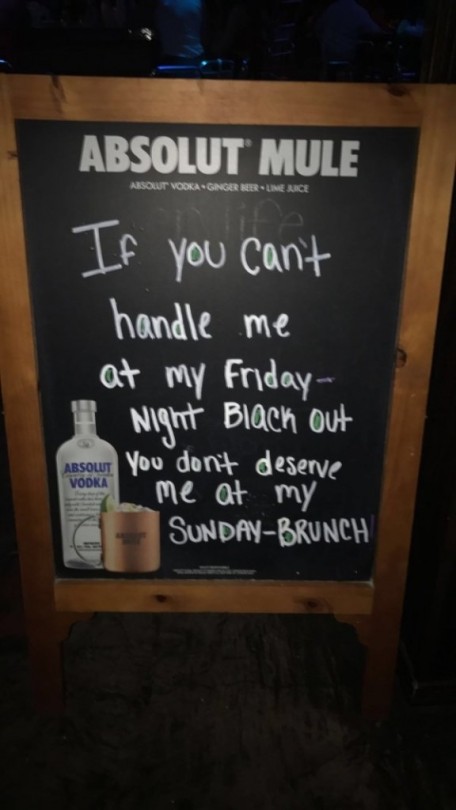 ABSOLUT® MULE
ABSOLUT® VODKA • GINGER BEER • LIME JUICE
If you can't
handle me
at my Friday-
Night Black out
you don't deserve
me at my
SUNDAY-BRUNCH!
ABSOLUT
VODKA
ABSOLUT